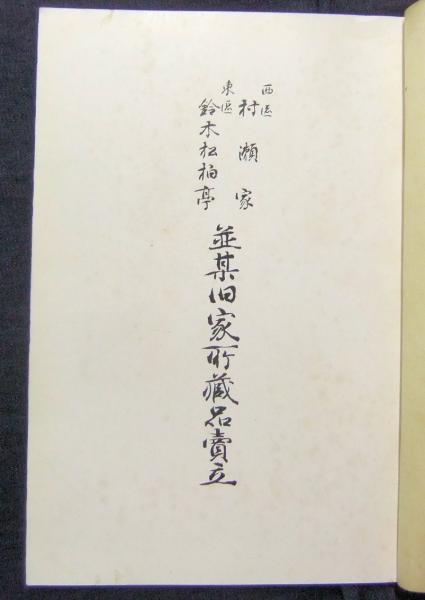 西區
村瀬家
東區
鈴木松柏亭
並某旧家所藏品賣立